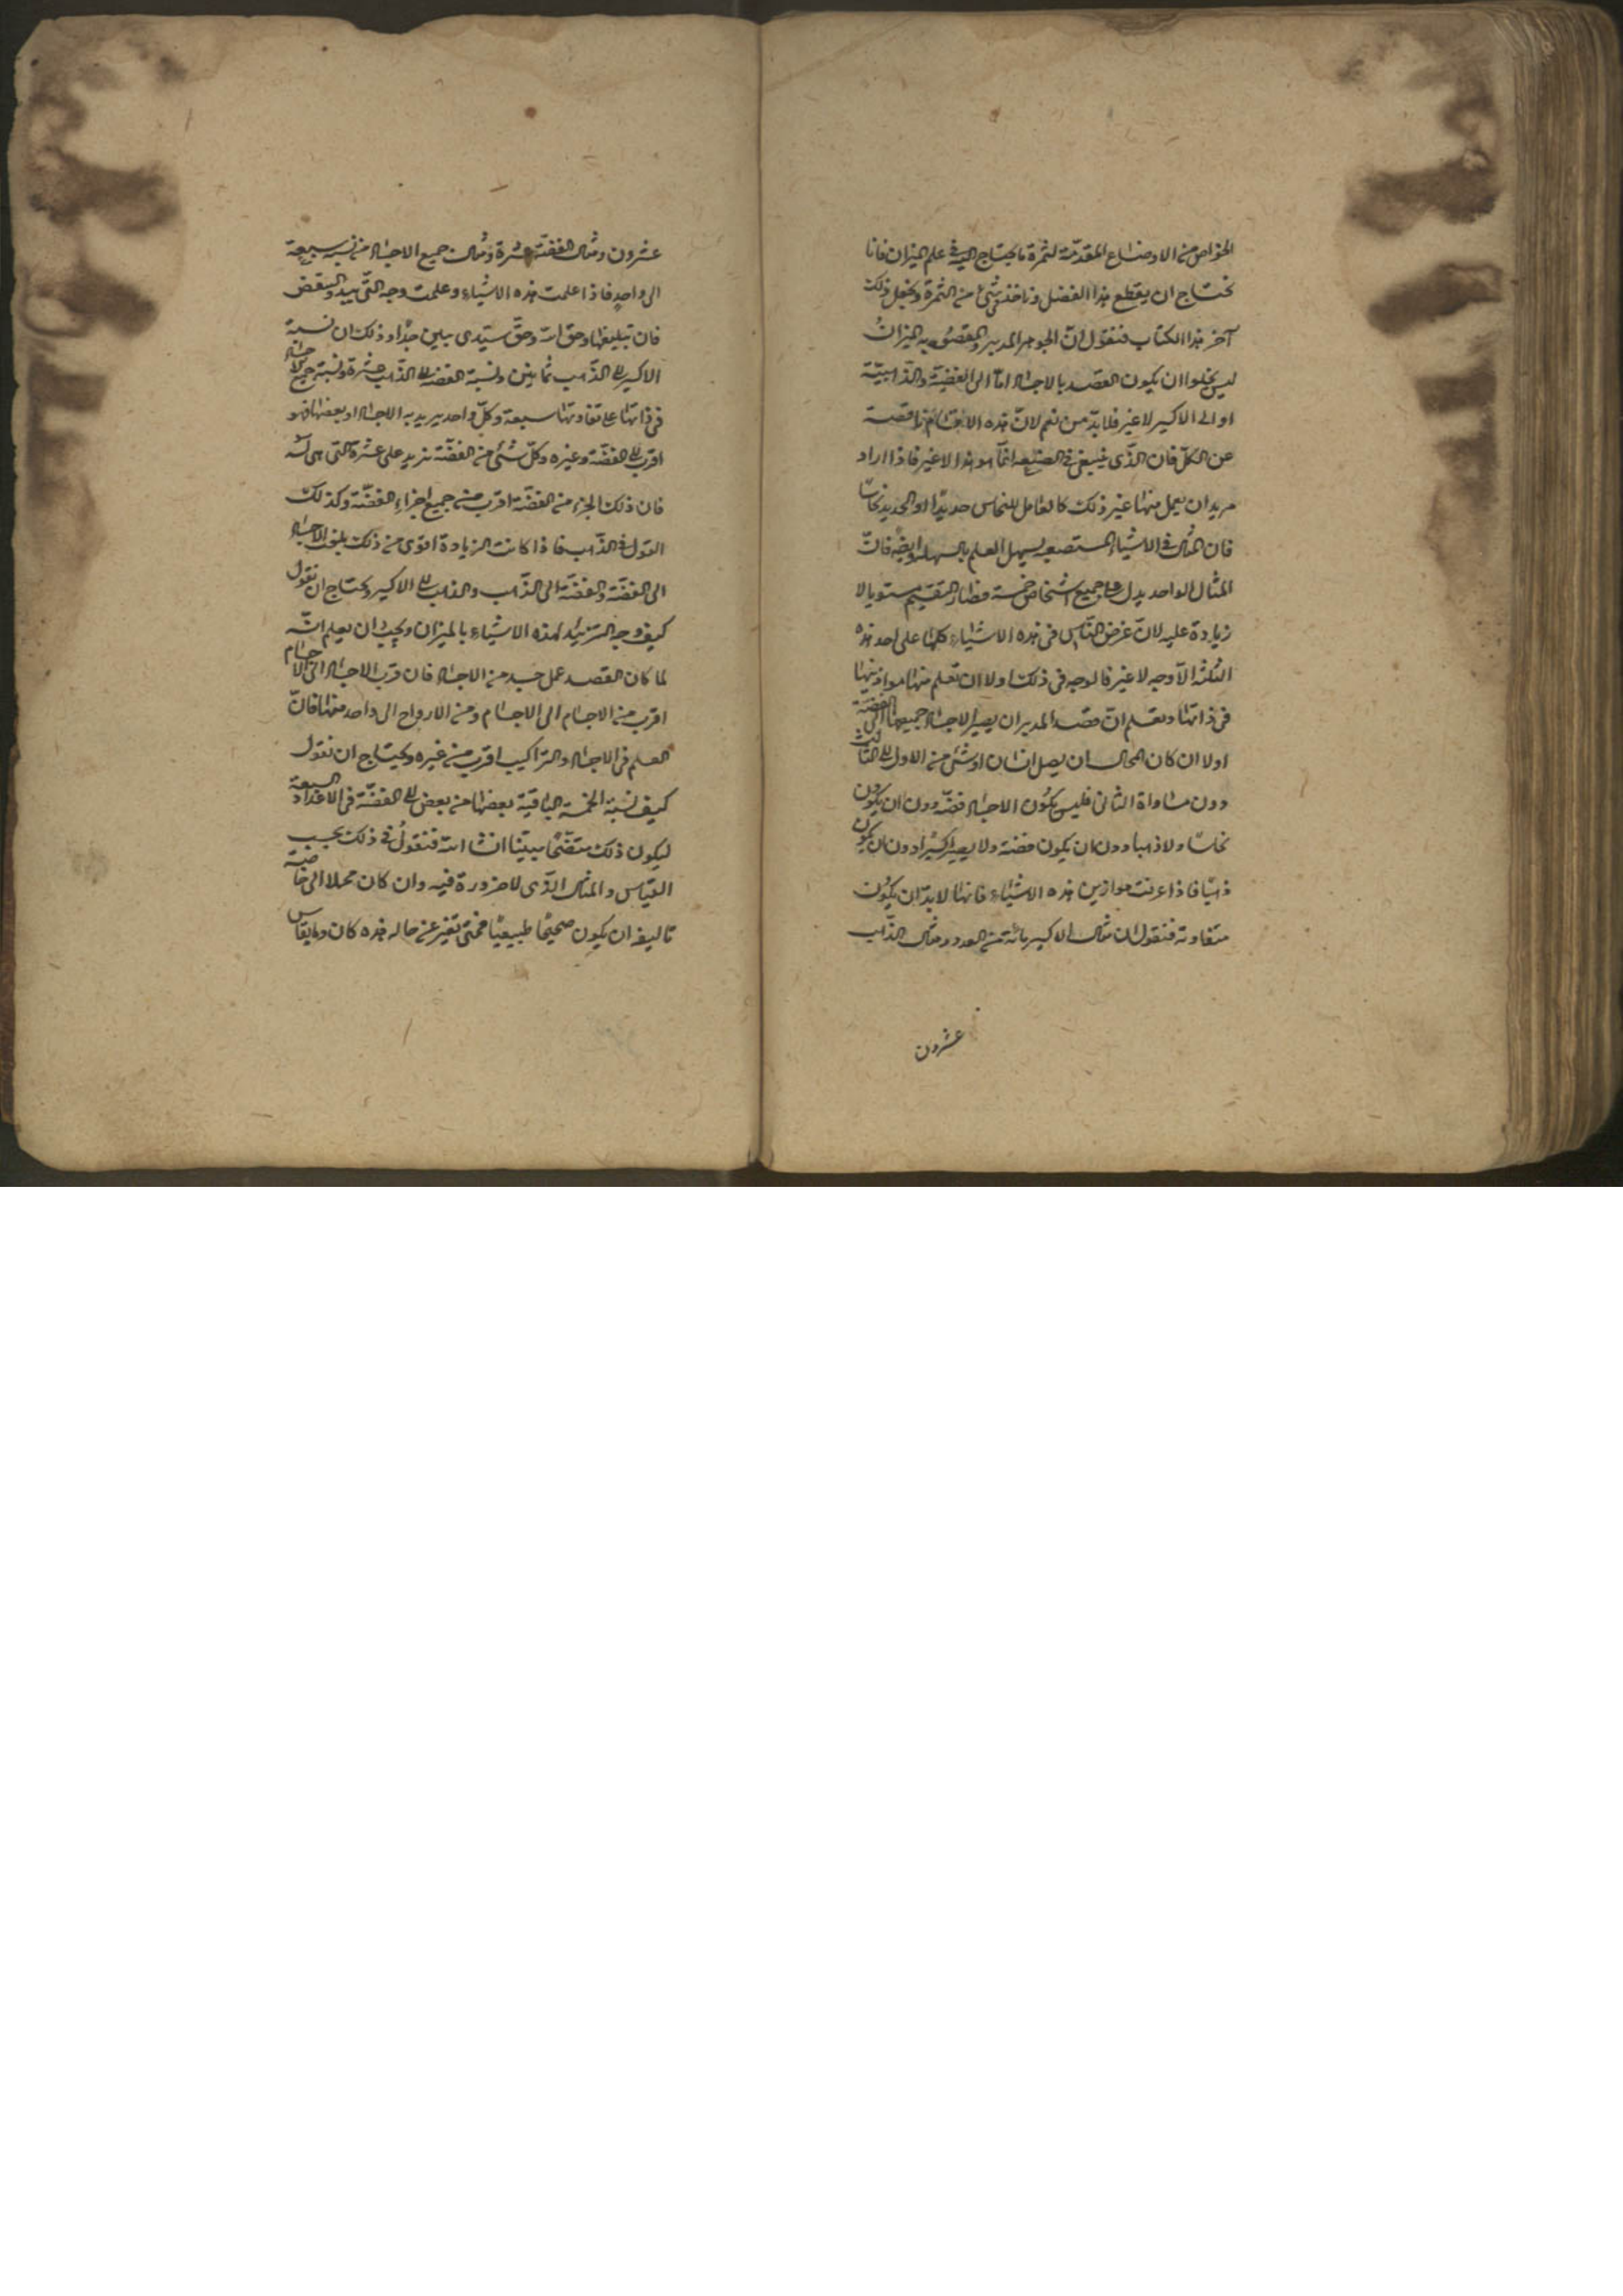 الخواص من الاوضاع المقدّمة لثمرة ما يحتاج اليه فى علم الميزان فانا
نحتاج ان يقطع هذا الفصل وناخذ فى شئ من الثمرة ونجعل ذلك
آخر هذا الكتاب فنقول انّ الجوهر المدبر والمقصود به الميزان
ليس يخلوا ان يكون القصد بالاجساد امّا الى الفضيّة والذّهبيّة
او الى الاكسير لا غير فلا بدّ من نعم لانّ هذه الاقسام ناقصة
عن الكلّ فان الذّى ينبغى فى الصنعة انّما هو هذا لا غير فاذا اراد
مريد ان يعمل منها غير ذلك كالعامل للنحاس حديدًا او الحديد نحاسًا
فان المثال فى الاشياء المستصعبة يسهل العلم بالسهلة وايضًا فانّ
المثال الواحد يدل على جميع اشخاص خمسة فصار التقسيم مستويا لا
زيادة عليه لانّ غرض النّاس فى هذه الاشياء كلها على احد هذه
الثلثة الاوجه لا غير فالوجه فى ذلك اولا ان تعلم منها موازينها
فى ذاتها وتعلم انّ قصد المدبر ان يصير الاجساد جميعها الى الفضة
اولا ان كان المحال ان يصل انسان او شئ من الاول الى الثالث
دون مساواة الثانى فليس يكون الاجساد فضّة دون ان يكون
نحاسًا ولا ذهبا دون ان يكون فضة ولا يصير اكسيرًا دون ان يكون
ذهبًا فاذا عرفت موازين هذه الاشياء فانها لا بدّ ان يكون
متفاوتة فنقول ان مثال الاكسير مائة من العدد ومثال الذّهب
عشرون
عشرون ومثال الفضّة عشرة ومثال جميع الاجساد من نسبة سبعة
الى واحد فاذا علمت هذه الاشياء وعلمت وجه التّزييد والتنقيص
فان تبليغها وحق اللّه وحقّ سيّدى يبلين جدًا وذلك ان نسبة
الاكسير الى الذّهب ثمانين ونسبة الفضة الى الذّهب عشرة ونسبة جميع الاجساد
فى ذاتها على تفاوتها سبعة وكلّ واحد يريد به الاجساد او بعضها فهو
اقرب الى الفضّة وغيره وكلّ شئ من الفضّة تزيد على عشرة التّى هى له
فان ذلك الجزء من الفضّة اقرب من جميع اجزاء الفضّة وكذلك
القول فى الذّهب فاذا كانت الزيادة اقوى من ذلك بلغت الاجساد
الى الفضّة والفضّة الى الذّهب والذهب الى الاكسير ونحتاج ان نقول
كيف وجه التزييد لهذه الاشياء بالميزان ويجب ان يعلم انّه
لما كان القصد عمل جسد من الاجساد فان قرب الاجساد الى الاجسام
اقرب من الاجسام الى الاجسام ومن الارواح الى واحد منها فانّ
العلم فى الاجساد والتراكيب اقرب من غيره ونحتاج ان نقول
كيف نسبة الخمسة الباقية بعضها من بعض الى الفضّة فى الاعداد السبعة
ليكون ذلك متقنًا مبيّنا انشا اللّه فنقول فى ذلك بحسب
القياس والمثال الذّى لا ضرورة فيه وان كان محلا الى خاصية
تاليفه ان يكون صحيحًا طبيعيًا فمتى تغير عن حاله هذه كان وما يقاس